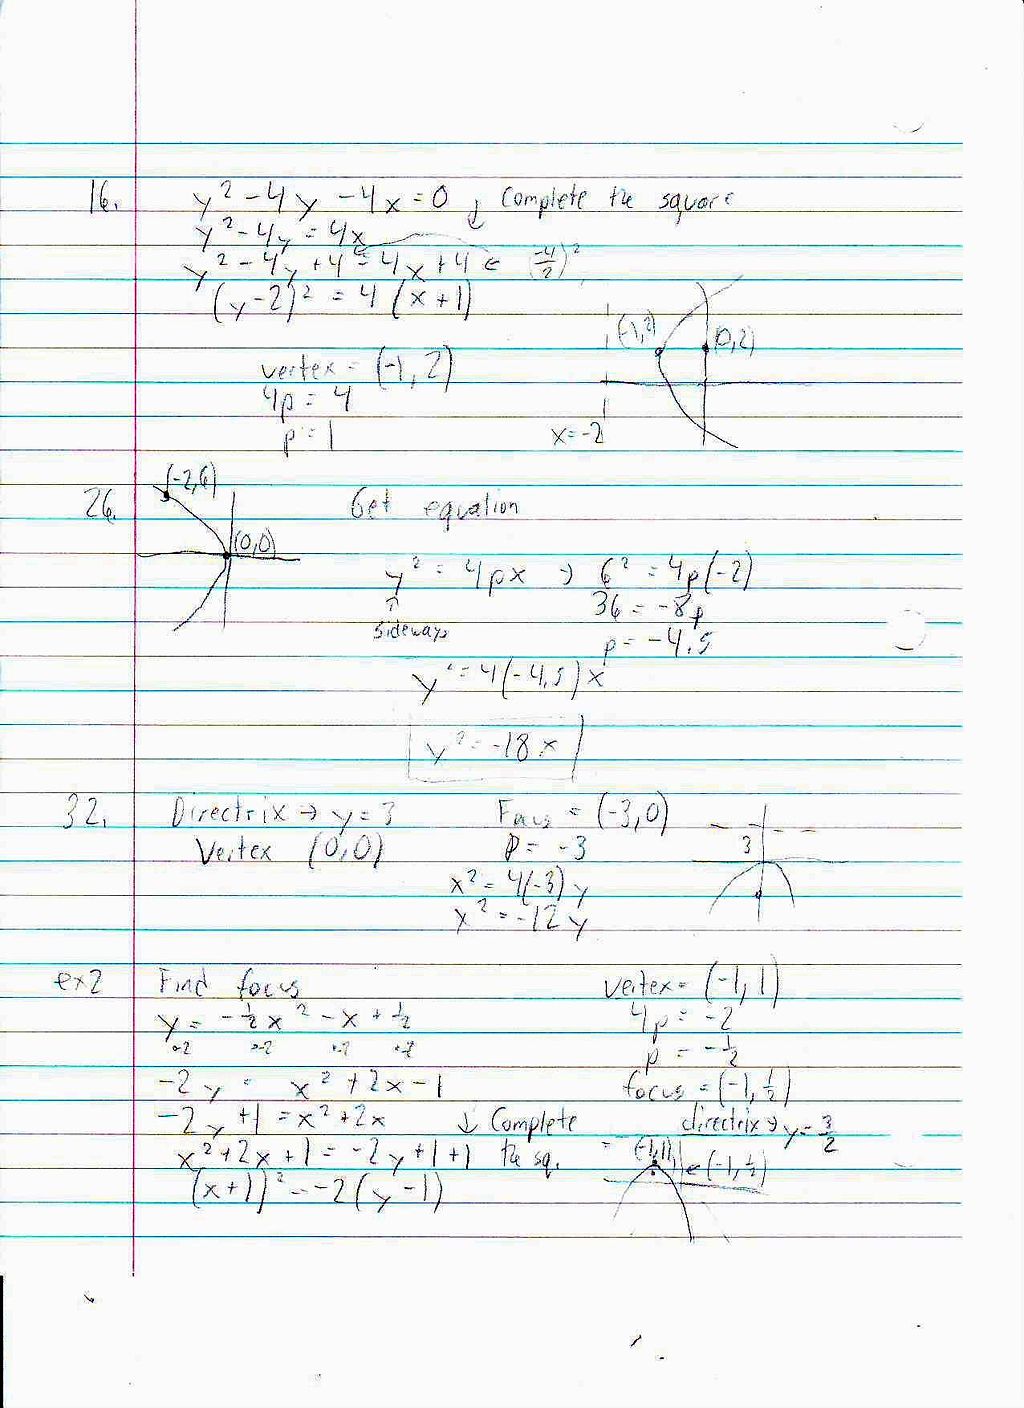 16. y² - 4y - 4x = 0 ↓ Complete the square
y² - 4y = 4x
y² - 4y + 4 = 4x + 4 ← (-4/2)²
(y-2)² = 4(x+1)
vertex = (-1, 2)
4p = 4
p = 1
(-1,2) (0,2)
x = -2
26. (-2,6)
(0,0)
Get equation
y² = 4px → 6² = 4p(-2)
↑ 36 = -8p
sideways p = -4.5
y² = 4(-4.5)x
y² = -18x
32. Directrix → y = 3
Vertex (0,0)
Focus = (-3,0)
p = -3
x² = 4(-3)y
x² = -12y
3
ex2 Find focus
y = -1/2x² - x + 1/2
·-2 ·-2 ·-2 ·-2
-2y = x² + 2x - 1
-2y + 1 = x² + 2x ↓ Complete
x² + 2x + 1 = -2y + 1 + 1 the sq.
(x+1)² = -2(y-1)
vertex = (-1, 1)
4p = -2
p = -1/2
focus = (-1, 1/2)
directrix → y = 3/2
(-1,1) ← (-1, 1/2)